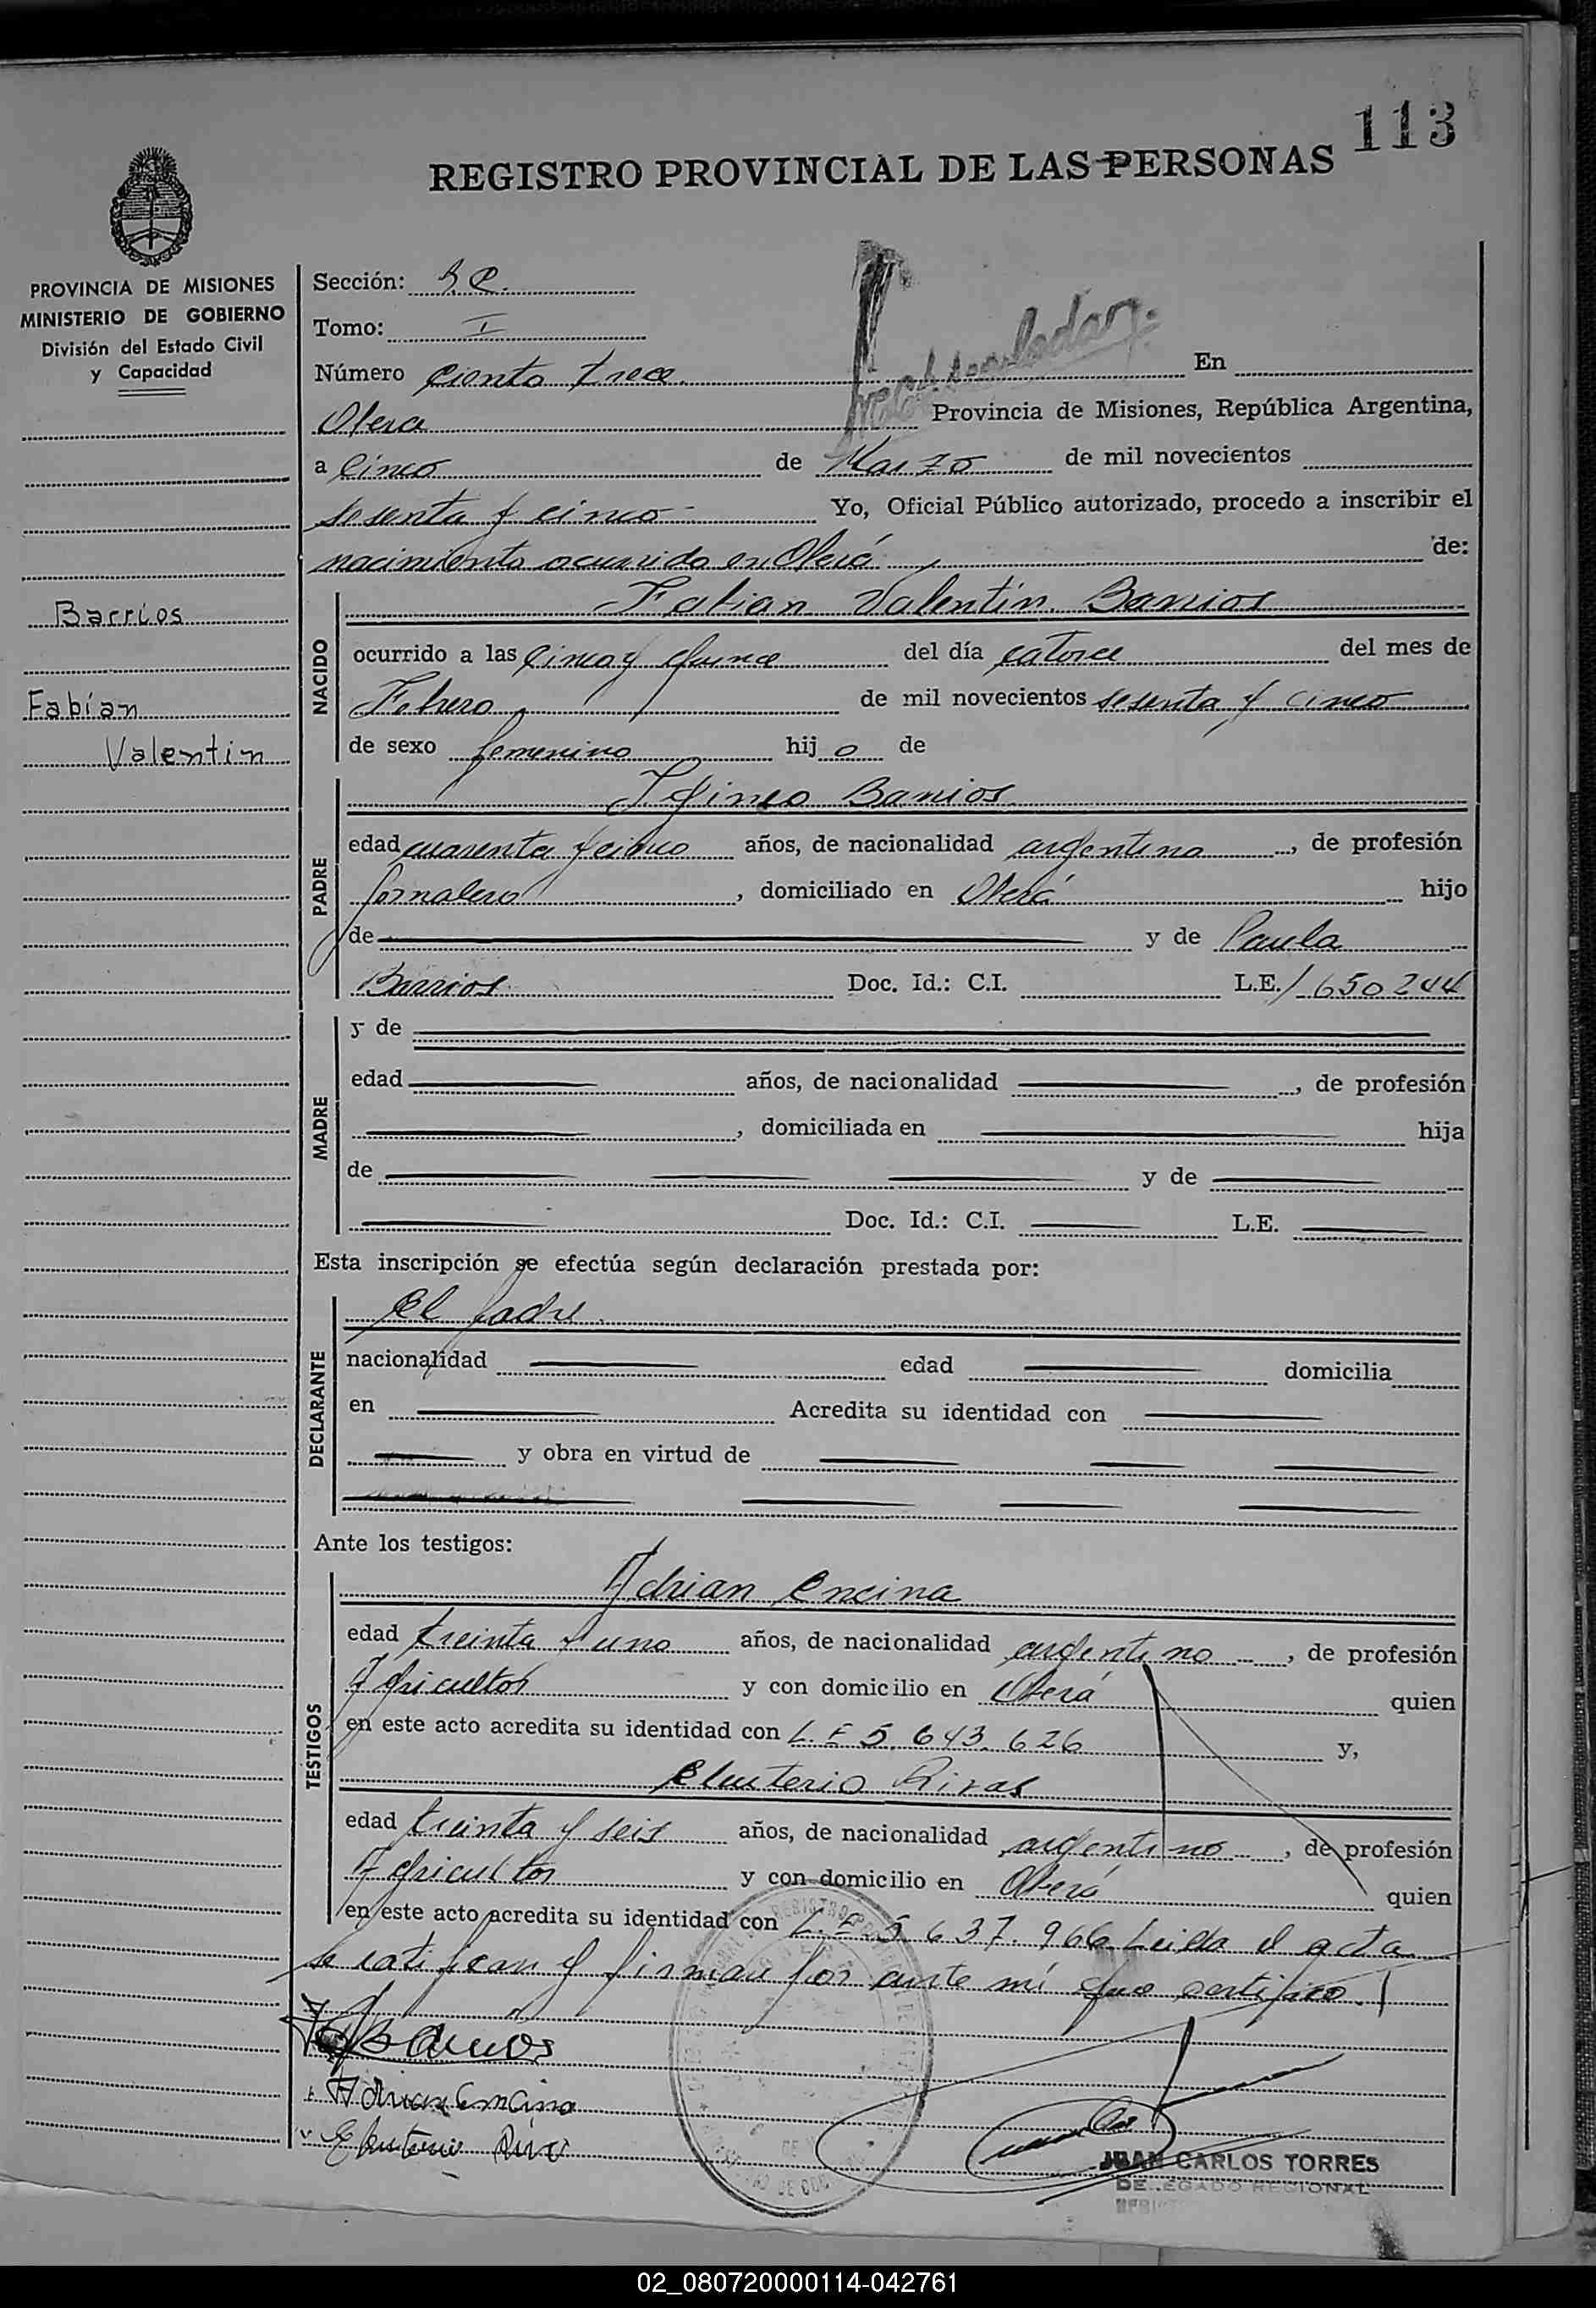 113
REGISTRO PROVINCIAL DE LAS PERSONAS
PROVINCIA DE MISIONES
MINISTERIO DE GOBIERNO
División del Estado Civil
y Capacidad
Barrios
Fabían
Valentin
Sección:
Tomo: I
Número Ciento trece En
Obera Provincia de Misiones, República Argentina,
a Cinco de Marzo de mil novecientos
sesenta y cinco Yo, Oficial Público autorizado, procedo a inscribir el
nacimiento ocurrido en Oberá de:
NACIDO
Fabian Valentín Barrios
ocurrido a las Cinco y quince del día catorce del mes de
Febrero de mil novecientos sesenta y cinco
de sexo femenino hij o de
PADRE
Barrios
edad cuarenta y cinco años, de nacionalidad argentino, de profesión
Jornalero, domiciliado en Oberá hijo
de y de Paula
Barrios Doc. Id.: C.I. L.E. 1650244
MADRE
y de
edad años, de nacionalidad , de profesión
, domiciliada en hija
de y de
Doc. Id.: C.I. L.E.
Esta inscripción se efectúa según declaración prestada por:
DECLARANTE
El padre
nacionalidad edad domicilia
en Acredita su identidad con
y obra en virtud de
Ante los testigos:
TESTIGOS
Adrian Encina
edad treinta y uno años, de nacionalidad argentino, de profesión
Agricultor y con domicilio en Oberá quien
en este acto acredita su identidad con L.E 5.643.626 y,
Eluterio Rivas
edad treinta y seis años, de nacionalidad argentino, de profesión
Agricultor y con domicilio en Oberá quien
en este acto acredita su identidad con L.E 5637.966 Leida el acta
se ratifican y firman por ante mí que certifico.
Barrios
Adrian Encina
Eluterio
JUAN CARLOS TORRES
DELEGADO REGIONAL
02_080720000114-042761